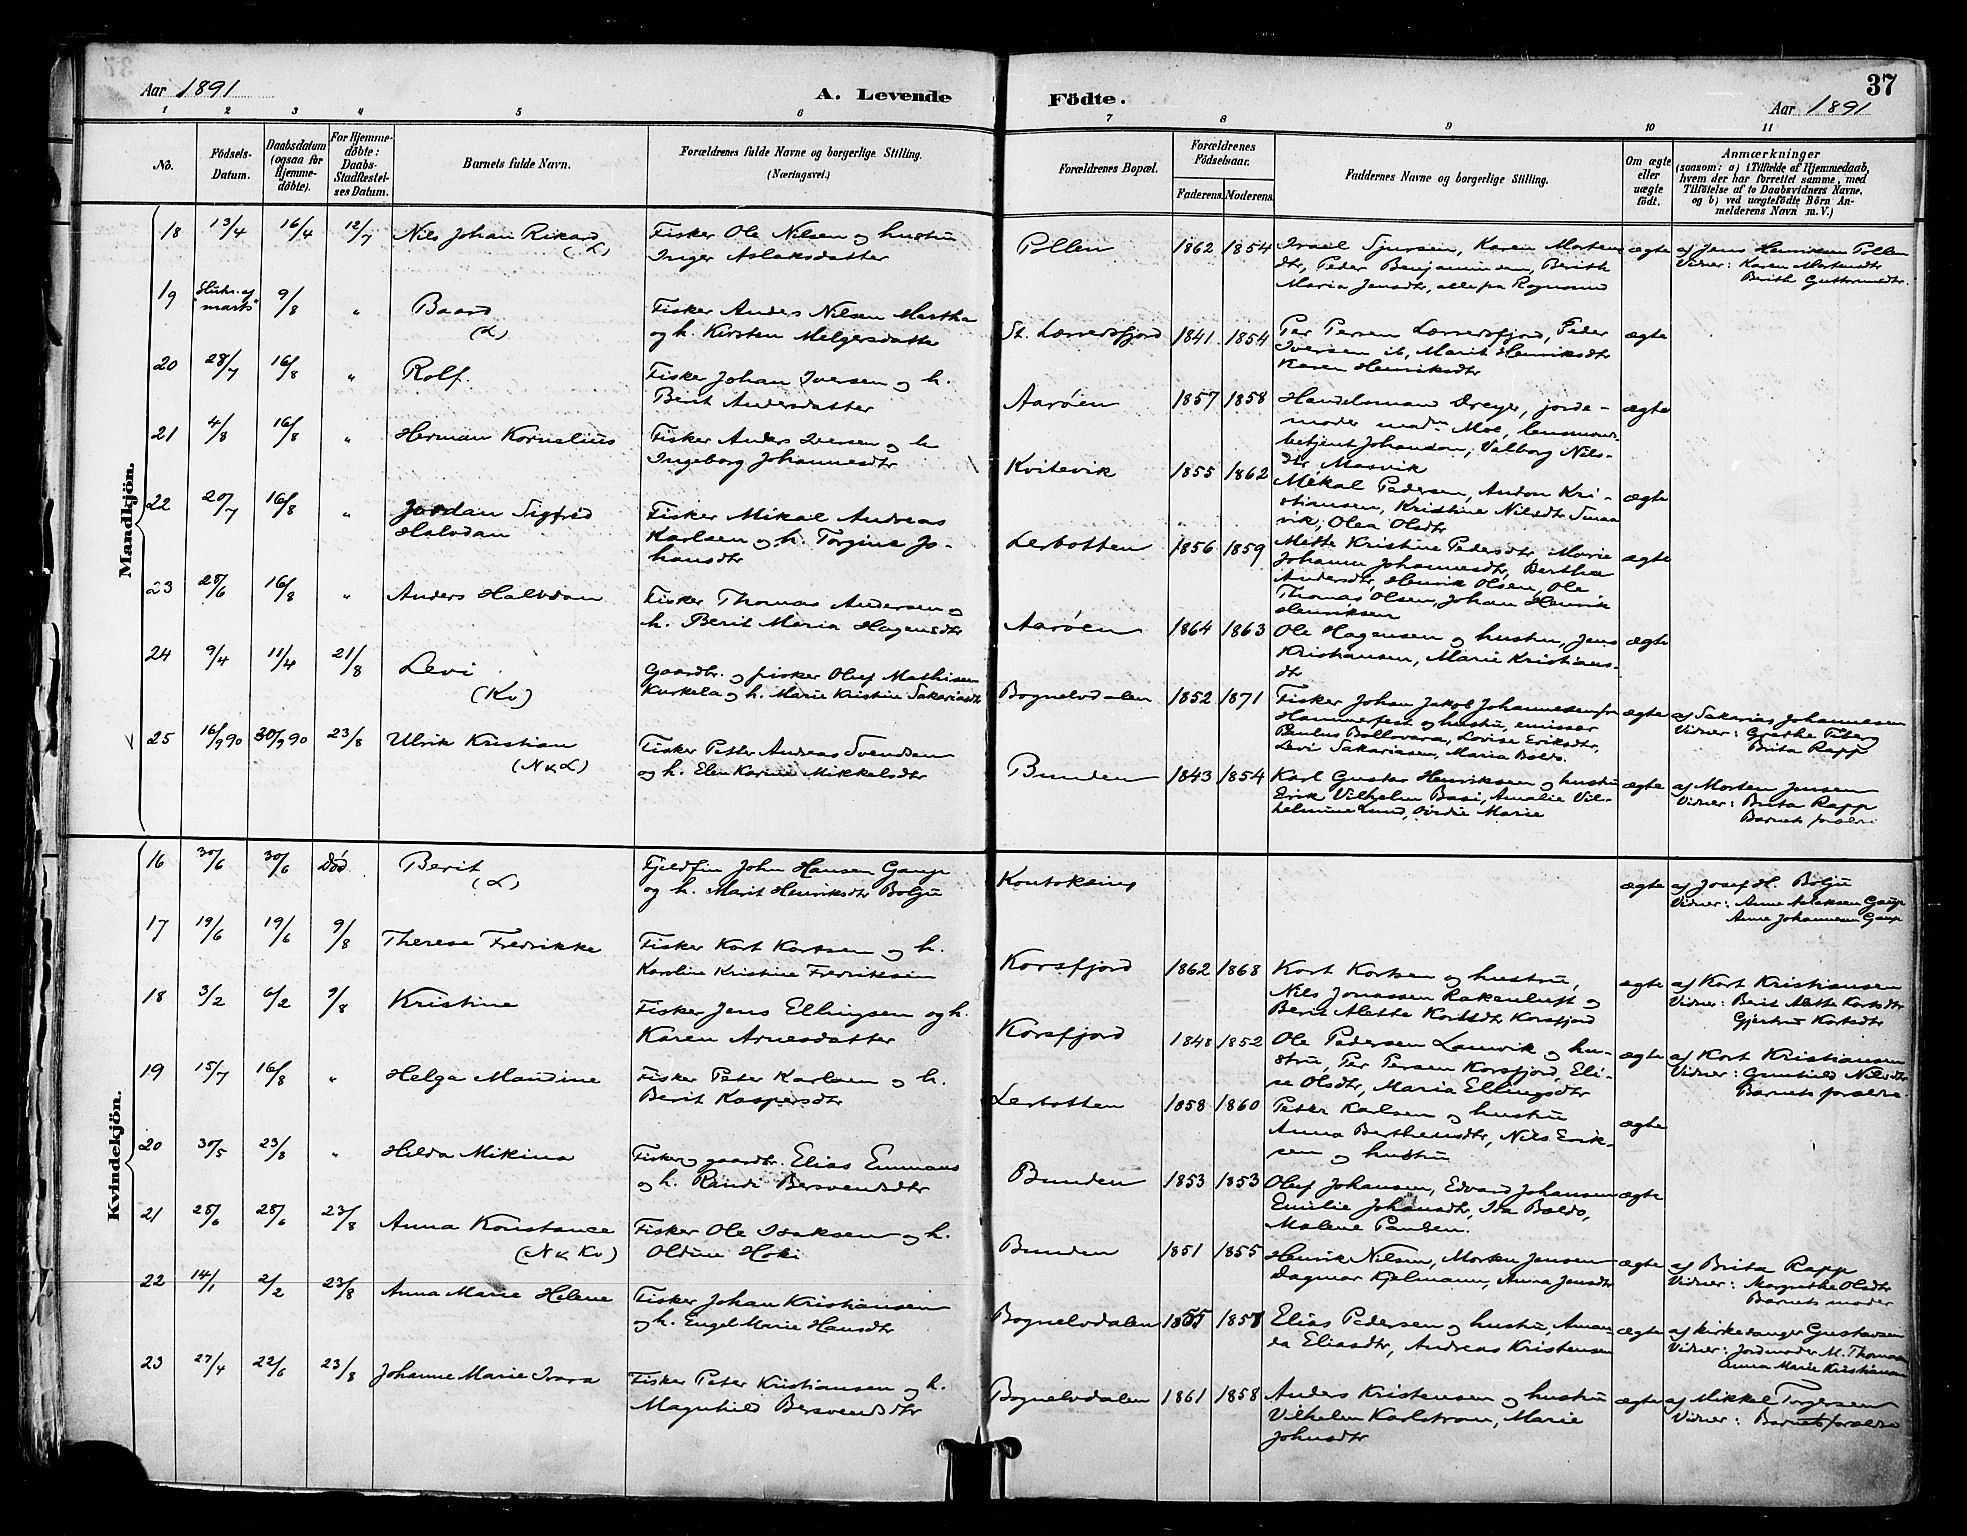 37
Aar 1891
A. Levende Födte.
Aar 1891
1 2 3 4 5 6 7 8 9 10 11
No.
Födsels-
Datum.
Daabsdatum
(ogsaa for
Hjemme-
döbte).
For Hjemme-
döbte:
Daabs-
Stadfæstel-
ses Datum.
Barnets fulde Navn.
Forældrenes fulde Navne og borgerlige Stilling.
(Næringsvei.)
Forældrenes Bopæl.
Forældrenes
Födselsaar.
Faderens. Moderens.
Faddernes Navne og borgerlige Stilling.
Om ægte
eller
uægte
født.
Anmærkninger
(saasom: a) i Tilfælde af Hjemmedaab,
hvem der har forrettet samme, med
Tilföielse af to Daabsvidners Navne,
og b) ved uægtefödte Börn An-
melderens Navn m. V.)
Mandkjön.
18 13/4 16/4 12/7 Nils Johan Rikard
(L)
Fisker Ole Nilsen og hustru
Inger Aslaksdatter
Pollen 1862 1854
Israel Sjursen, Karen Morten
dtr, Peder Benjaminsen, Berith
Maria Jensdtr, alle fra Rognsund
ægte
af Jens Henriksen Pollen
Vidner: Karen Mortensdtr
Berith Guttormsdtr.
19 Slutn. af "marts" 9/8 " Baard
(L)
Fisker Anders Nilsen Martha
og h. Kirsten Melgersdatter
St. Lerresfjord 1841 1854
Per Persen Lerresfjord, Peder
Iversen ib, Marit Henriksdtr
Karen Henriksdtr
ægte
20 28/7 16/8 " Rolf.
Fisker Johan Iversen og h.
Berit Andersdatter
Aarøen 1857 1858
Handelsmand Dreyer, jorde-
moder madm Moe, lensmands
betjent Johansen, Valborg Nils-
dtr Masvik
ægte
21 4/8 16/8 " Herman Kornelius
Fisker Anders Iversen og h
Ingeborg Johannesdtr
Kvitevik 1855 1862
Mikal Pedersen, Anton Kri-
stiansen, Kristine Nilsdtr Smaa
vik, Olea Olsdtr
ægte
22 20/7 16/8 " Jordan Sigfred
Halvdan
Fisker Mikal Andreas
Karlsen og h. Torgine Jo-
hansdtr
Lerbotten 1856 1859
Mette Kristine Pedersdtr, Marie
Johanna Johannesdtr, Berthe
Andersdtr, Henrik Olsen, Ole
Thomas Olsen, Johan Henrik
Henriksen
ægte
23 25/6 16/8 " Anders Halvdan
Fisker Thomas Andersen og
h. Berit Maria Hagensdtr
Aarøen 1864 1863
Ole Hagensen og hustru, Jens
Kristiansen, Marie Kristians-
dtr
ægte
24 9/4 11/4 21/8 Levi
(Kv)
Gaardbr. og fisker Oluf Mathisen
Kurkela og h. Marie Kristine Sakariasdtr
Bognelvdalen 1852 1871
Fisker Johan Jakob Johannesen fra
Hammerfest og hustru, emissær
Paulus Ballovara, Lovise Eriksdtr,
Levi Sakariasen, Maria Baldo.
ægte
af Sakarias Johannesen
Vidner: Grethe Fiberg
Brita Rapp
25 16/9 90 30/9 90 23/8 Ulrik Kristian
(N & L)
Fisker Petter Andreas Svendsen
og h. Elen Karine Mikkelsdtr
Bunden 1843 1854
Karl Gustav Henriksen og hustru
Erik Vilhelm Basi, Amalie Vil-
helmine Lund, Ovidie Marie
ægte
af Morten Jensen
Vidner: Brita Rapp
Barnets forældre
Kvindekjön.
16 30/6 30/6 Død Berit
(L)
Fjeldfin John Hansen Gaup
og h. Marit Henriksdtr Bolju
Koutokeino
ægte
af Josef H. Bolju
Vidner: Anne Aslaksen Gaup
Anne Johannesen Gaup
17 19/6 19/6 9/8 Therese Fredrikke
Fisker Kort Kortsen og h.
Karoline Kristine Fredriksen
Korsfjord 1862 1868
Kort Kortsen og hustru,
Nils Jonassen Rakenluft og
Berit Alette Kortsdtr Korsfjord
ægte
af Kort Kristiansen
Vidner: Berit Alette Kortsdtr
Gjertrud Kortsdtr
18 3/2 6/2 9/8 Kristine
Fisker Jens Ellingsen og h.
Karen Arnesdatter
Korsfjord 1848 1852
Ole Pedersen Lamvik og hu-
stru, Per Persen Korsfjord, Eli-
se Olsdtr, Maria Ellingsdtr
ægte
af Kort Kristiansen
Vidner: Gunhild Nilsdtr
Barnets forældre.
19 15/7 16/8 " Helga Mandine
Fisker Peter Karlsen og h.
Berit Kaspersdtr
Lerbotten 1858 1860
Petter Karlsen og hustru
Anna Berthensdtr, Nils Erik-
sen og hustru
ægte
20 30/5 23/8 " Hilda Mikina
Fisker og gaardbr. Elias Emmaus
og h. Randi Bersvendsdtr
Bunden 1853 1853
Oluf Johansen, Edvard Johansen
Emilie Johansdtr, Ida Baldo,
Malene Paulsen.
ægte
21 25/6 25/6 23/8 Anna Konstance
(N & Kv)
Fisker Ole Isaksen og h.
Oldine Hoki
Bunden 1851 1855
Henrik Nilsen, Morten Jensen
Dagmar Kjelmann, Anna Jensdtr
ægte
af Brita Rapp
Vidner: Margrethe Olsdtr
Barnets moder
22 14/1 2/2 23/8 Anna Marie Helene
Fisker Johan Kristiansen
og h. Engel Marie Hansdtr
Bognelvdalen 1855 1857
Elias Pedersen og hustru, Aman-
da Eliasdtr, Andreas Kristensen
ægte
af kirkesanger Gustavsen
Vidner: Jordmoder M. Thomasen
Anna Marie Kristiansen
23 27/4 22/6 23/8 Johanne Marie Ivara
Fisker Peter Kristiansen og h.
Magnhild Bersvendsdtr
Bognelvdalen 1861 1858
Anders Kristensen og hustru
Vilhelm Karlstrøm, Marie
Johnsdtr
ægte
af Mikkel Torgersen
Vidner: Barnets forældre